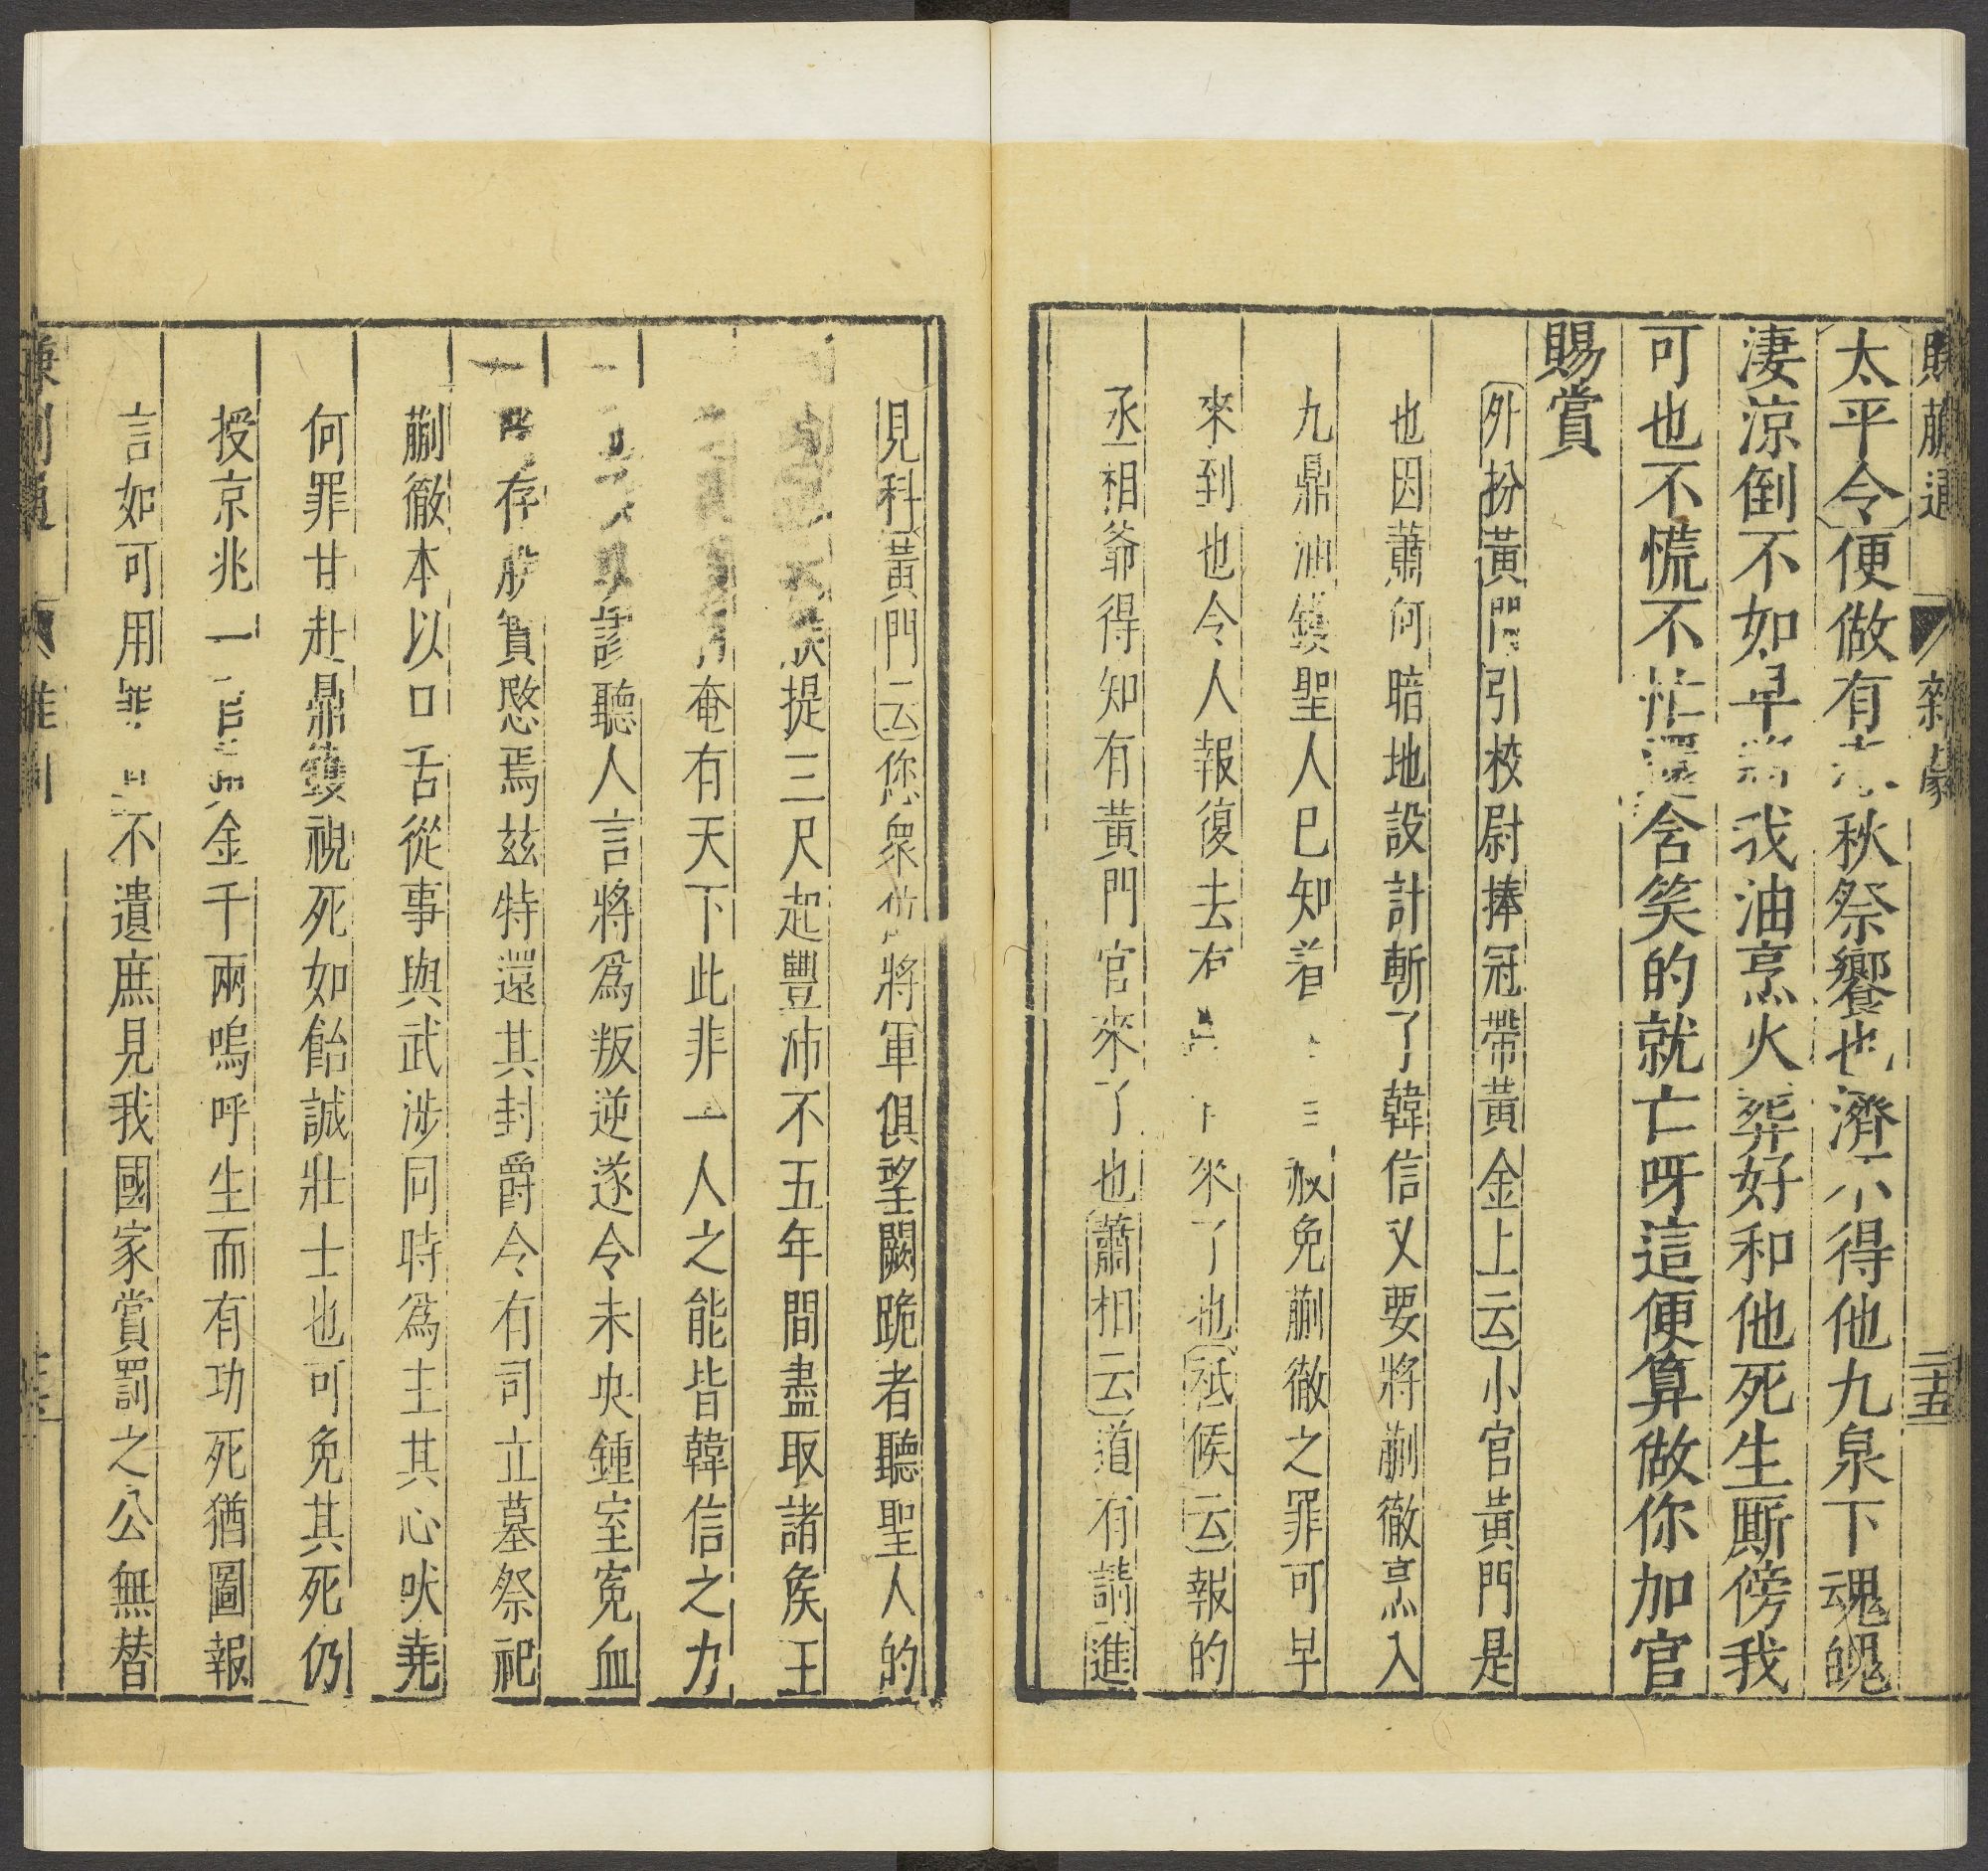 賺蒯通 雜劇 二十五
太平令便做有秋祭饗也濟不得他九泉下魂魄
淒涼倒不如早將我油烹火葬好和他死生厮傍我
可也不慌不忙還含笑的就亡呀這便算做你加官
賜賞
外扮黃門引校尉捧冠帶黃金上云小官黃門是
也因蕭何暗地設計斬了韓信又要將蒯徹烹入
九鼎油鑊聖人已知着赦免蒯徹之罪可早
來到也令人報復去有來了也祗候云報的
丞相爺得知有黃門官來了也蕭相云道有請進
見科黃門云您衆將軍俱望闕跪者聽聖人的
提三尺起豐沛不五年間盡取諸侯王
奄有天下此非一人之能皆韓信之力
聽人言將爲叛逆遂令未央鍾室寃血
存殁負愍焉玆特還其封爵令有司立墓祭祀
蒯徹本以口舌從事與武涉同時爲主其心吠堯
何罪甘赴鼎鑊視死如飴誠壯士也可免其死仍
授京兆一金千兩嗚呼生而有功死猶圖報
言如可用罪不遺庶見我國家賞罰之公無替